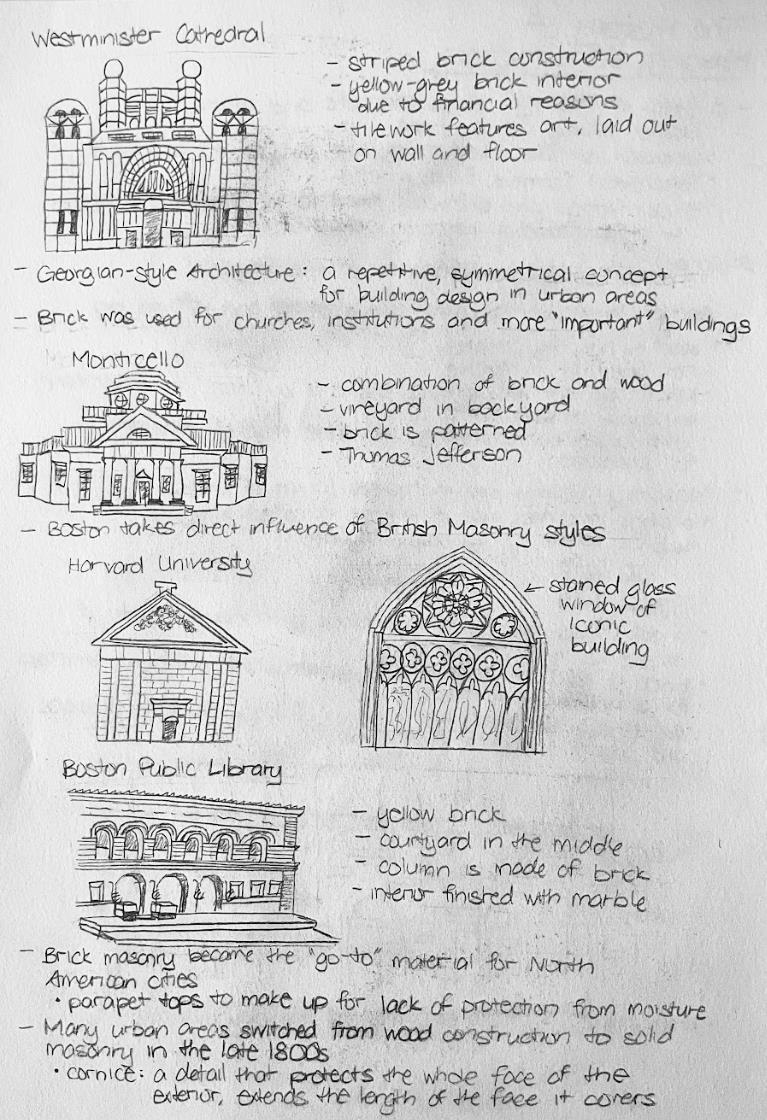 Westminister Cathedral
- striped brick construction
- yellow-grey brick interior
due to financial reasons
- tilework features art, laid out
on wall and floor
- Georgian-style Architecture: a repetitive, symmetrical concept
for building design in urban areas
- Brick was used for churches, institutions and more "important" buildings
Monticello
- combination of brick and wood
- vineyard in backyard
- brick is patterned
- Thomas Jefferson
- Boston takes direct influence of British Masonry styles
Harvard University
← stained glass
window of
iconic
building
Boston Public Library
- yellow brick
- courtyard in the middle
- column is made of brick
- interior finished with marble
- Brick masonry became the "go-to" material for North
American cities
• parapet tops to make up for lack of protection from moisture
- Many urban areas switched from wood construction to solid
masonry in the late 1800s
• cornice: a detail that protects the whole face of the
exterior, extends the length of the face it covers